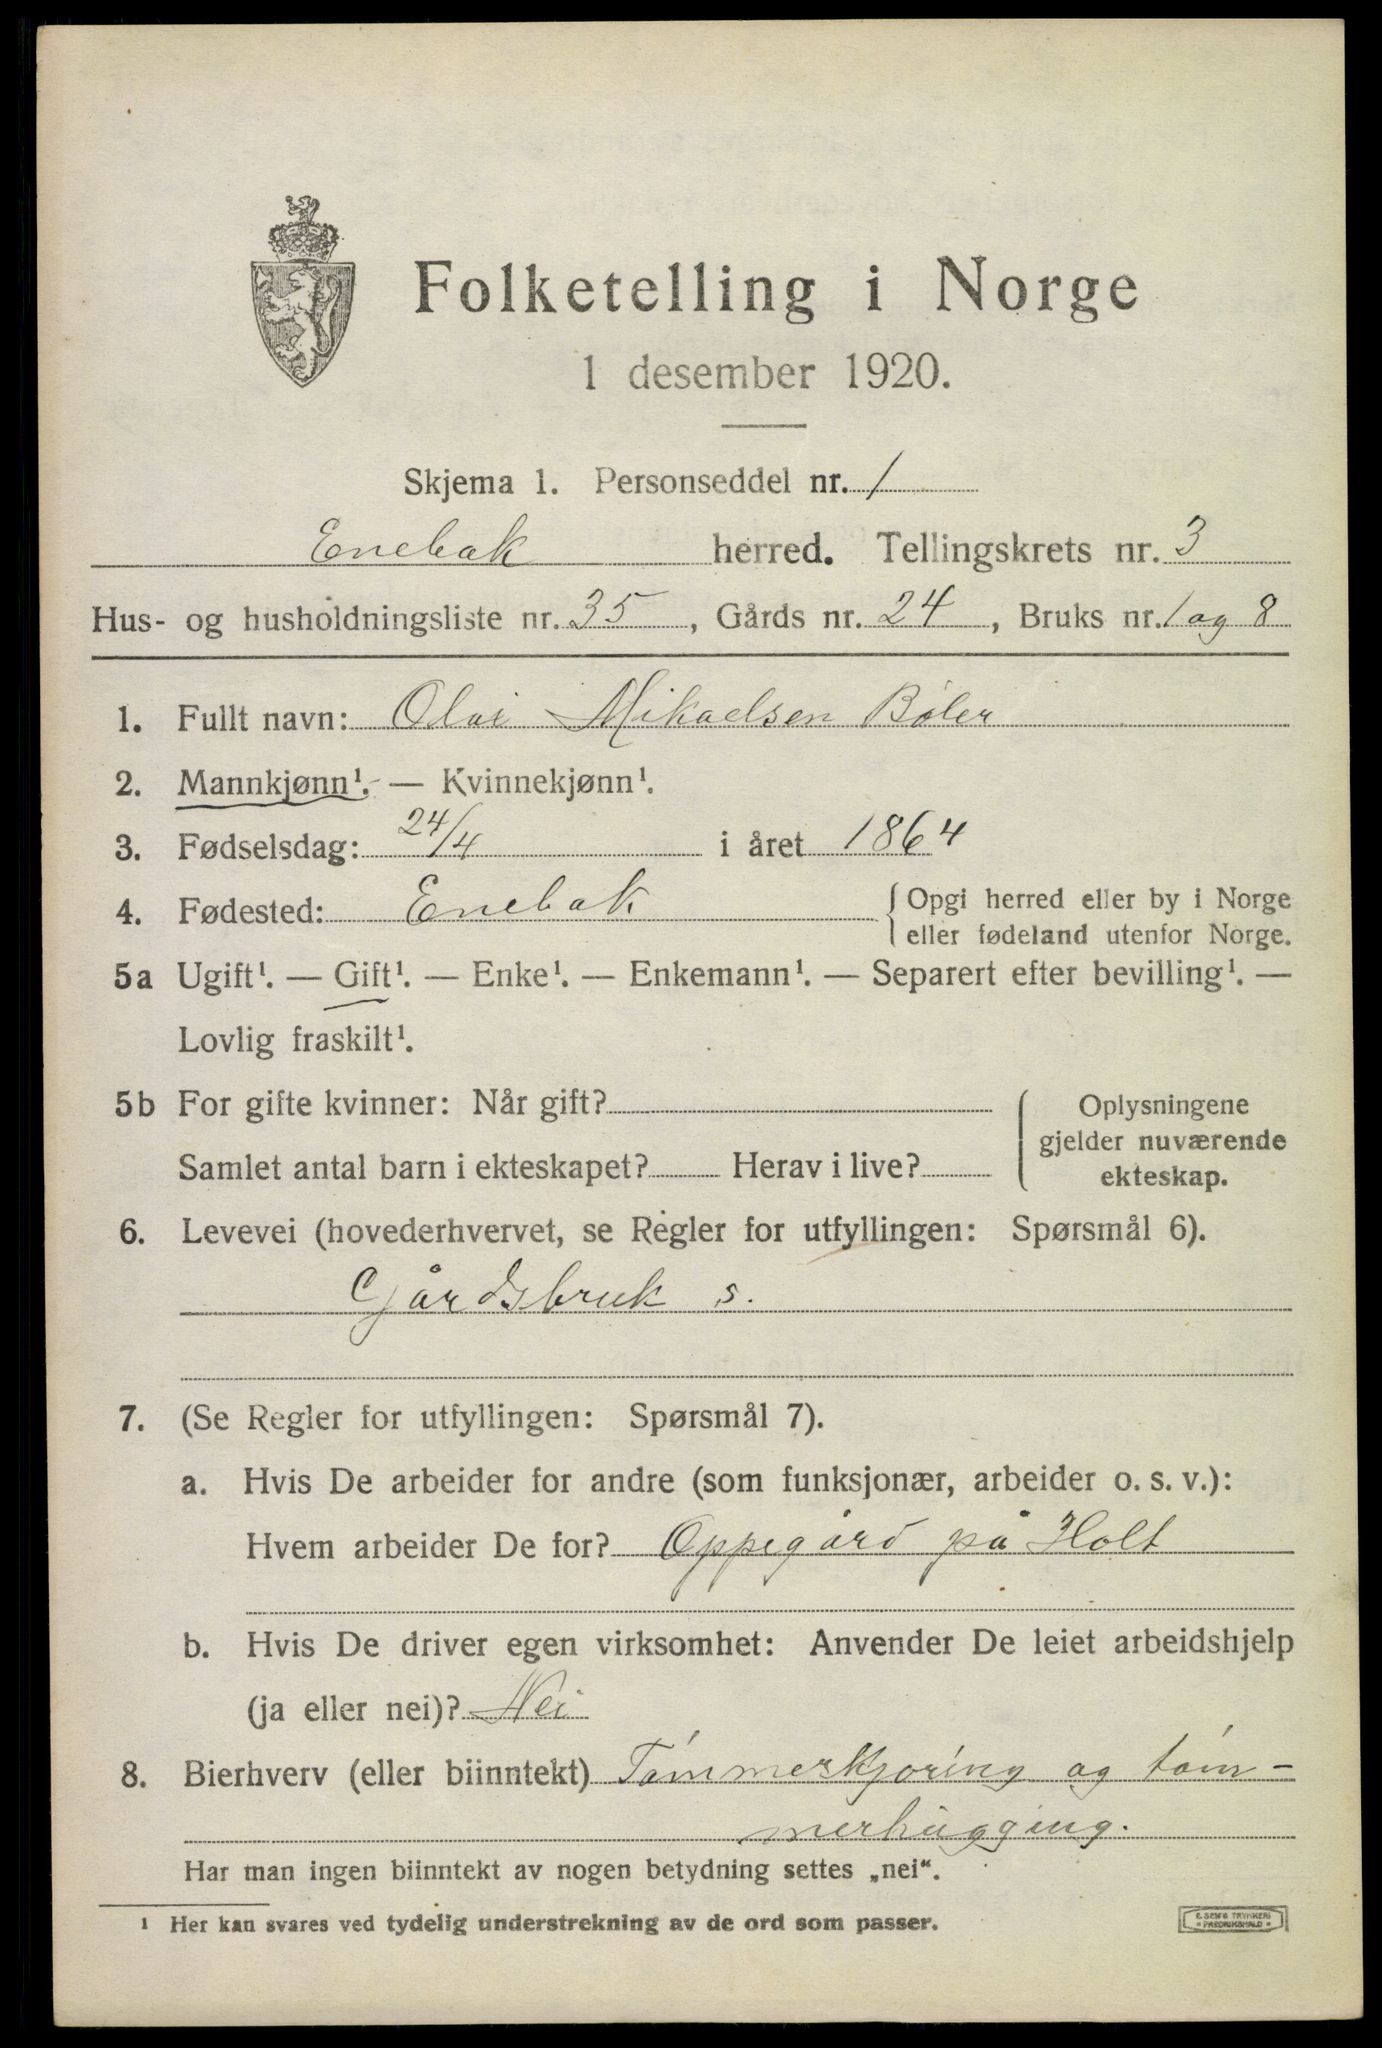 Folketelling i Norge
1 desember 1920.
Skjema 1. Personseddel nr. 1
Enebak herred. Tellingskrets nr. 3
Hus- og husholdningsliste nr. 35, Gårds nr. 24, Bruks nr. 1 og 8
1. Fullt navn: Olai Mikaelsen Bøler
2. Mannkjønn¹. — Kvinnekjønn¹.
3. Fødselsdag: 24/4 i året 1864
4. Fødested: Enebak { Opgi herred eller by i Norge
eller fødeland utenfor Norge.
5a Ugift¹. — Gift¹. — Enke¹. — Enkemann¹. — Separert efter bevilling¹. —
Lovlig fraskilt¹.
5b For gifte kvinner: Når gift?
Samlet antal barn i ekteskapet? Herav i live?
Oplysningene
gjelder nuværende
ekteskap.
6. Levevei (hovederhvervet, se Regler for utfyllingen: Spørsmål 6).
Gårdsbruk s.
7. (Se Regler for utfyllingen: Spørsmål 7).
a. Hvis De arbeider for andre (som funksjonær, arbeider o. s. v.):
Hvem arbeider De for? Oppegård på Holt
b. Hvis De driver egen virksomhet: Anvender De leiet arbeidshjelp
(ja eller nei)? Nei
8. Bierhverv (eller biinntekt) Tømmerkjøring og tøm-
merhugging.
Har man ingen biinntekt av nogen betydning settes „nei“.
¹ Her kan svares ved tydelig understrekning av de ord som passer.
E. SEM'S TRYKKERI
• FREDRIKSHALD •